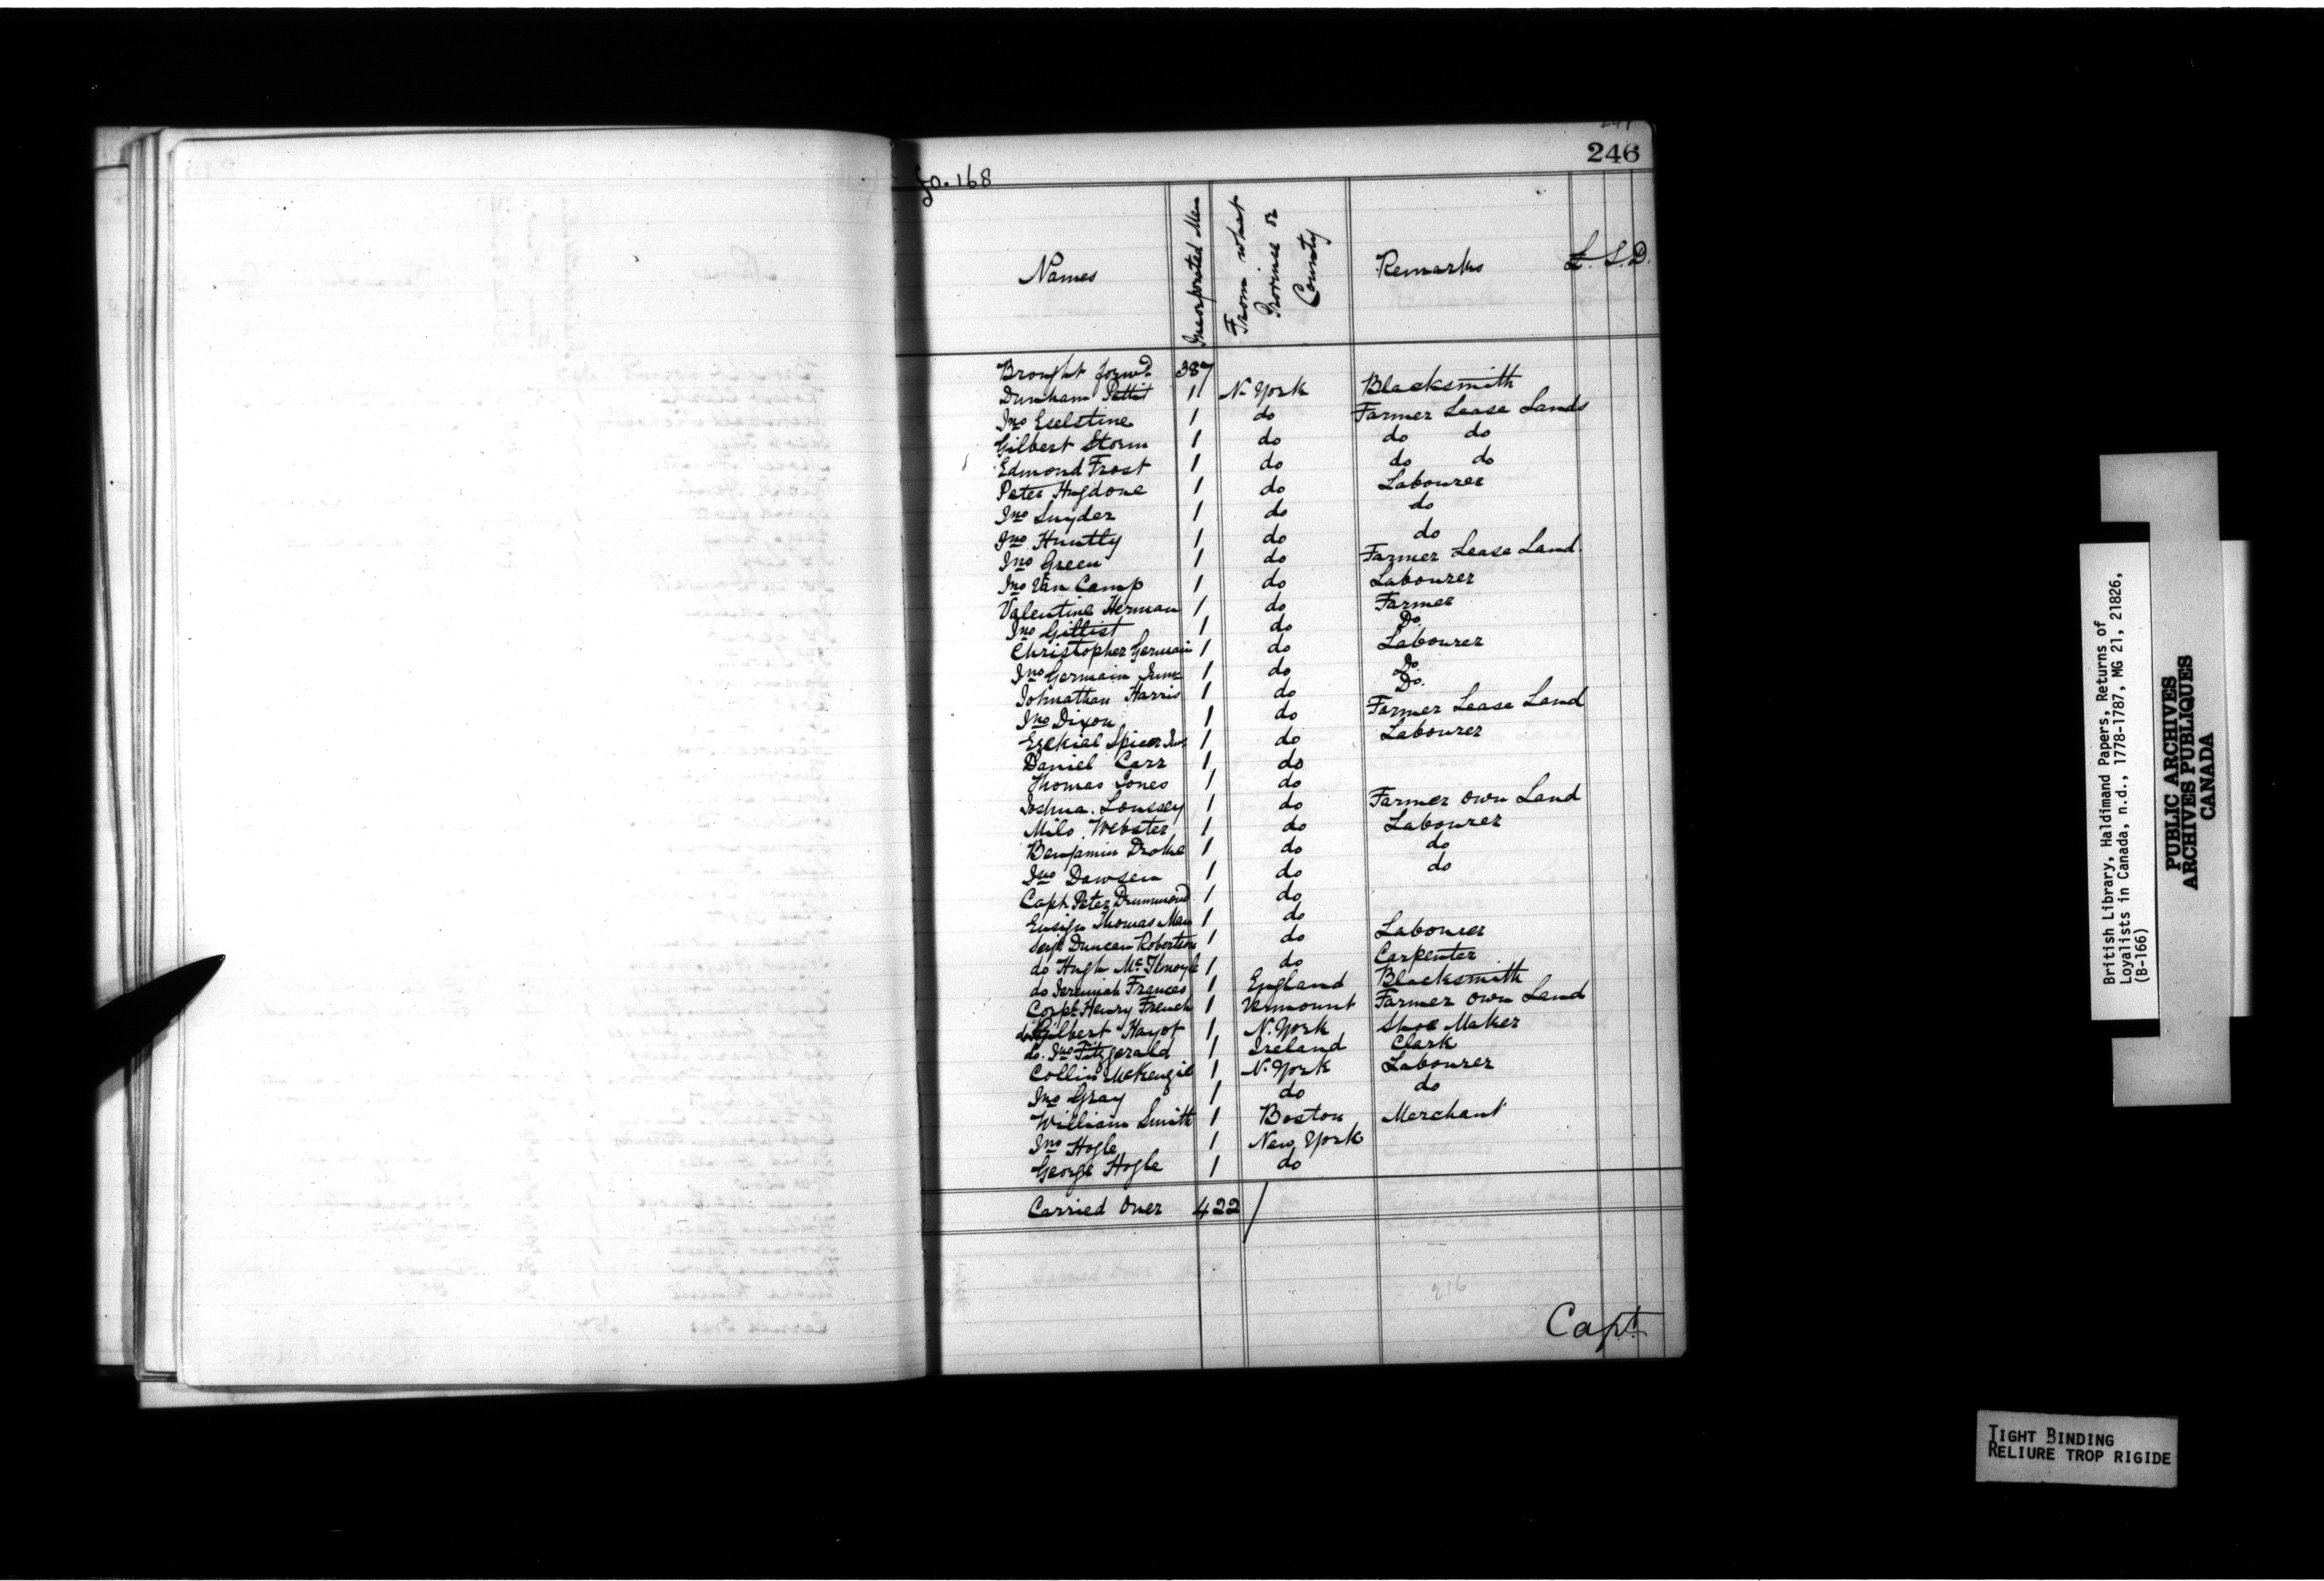 246
fo. 168
Names Incorporated Men From what Province or County Remarks L. S. D.
Brought forwd 387
Dunham Pettit 1 N. York Blacksmith
Jno Eselstine 1 do Farmer Lease Lands
Gilbert Storm 1 do do do
Edmond Frost 1 do do do
Peter Hugdone 1 do Labourer
Jno Snyder 1 do do
Jno Huntly 1 do do
Jno Green 1 do Farmer Lease Land
Jno Van Camp 1 do Labourer
Valentine Herman 1 do Farmer
Jno Gillist 1 do Do.
Christopher Germain 1 do Labourer
Jno Germain Junr 1 do Do.
Johnathan Harris 1 do Do.
Jno Dixon 1 do Farmer Lease Land
Ezekial Spicer Junr 1 do Labourer
Daniel Carr 1 do
Thomas Jones 1 do
Joshua. Loussey 1 do Farmer own Land
Milo Webster 1 do Labourer
Benjamin Drake 1 do do
Jno Dawsen 1 do do
Capt. Peter Drummond 1 do
Ensign Thomas Man 1 do
Serjt Duncan Robertson 1 do Labourer
do Hugh McIlmoyle 1 do Carpenter
do Jeremiah Frances 1 England Blacksmith
Corpl. Henry French 1 Vermount Farmer own Land
do Gilbert Hayot 1 N. York Shoe Maker
do. Jno Fitzgerald 1 Ireland Clark
Collin McKenzie 1 N. York Labourer
Jno Gray 1 do do
William Smith 1 Boston Merchant
Jno Hogle 1 New York
George Hogle 1 do
Carried Over 422
216
Capt.
British Library, Haldimand Papers, Returns of
Loyalists in Canada, n.d., 1778-1787, MG 21, 21826,
(B-166)
PUBLIC ARCHIVES
ARCHIVES PUBLIQUES
CANADA
TIGHT BINDING
RELIURE TROP RIGIDE